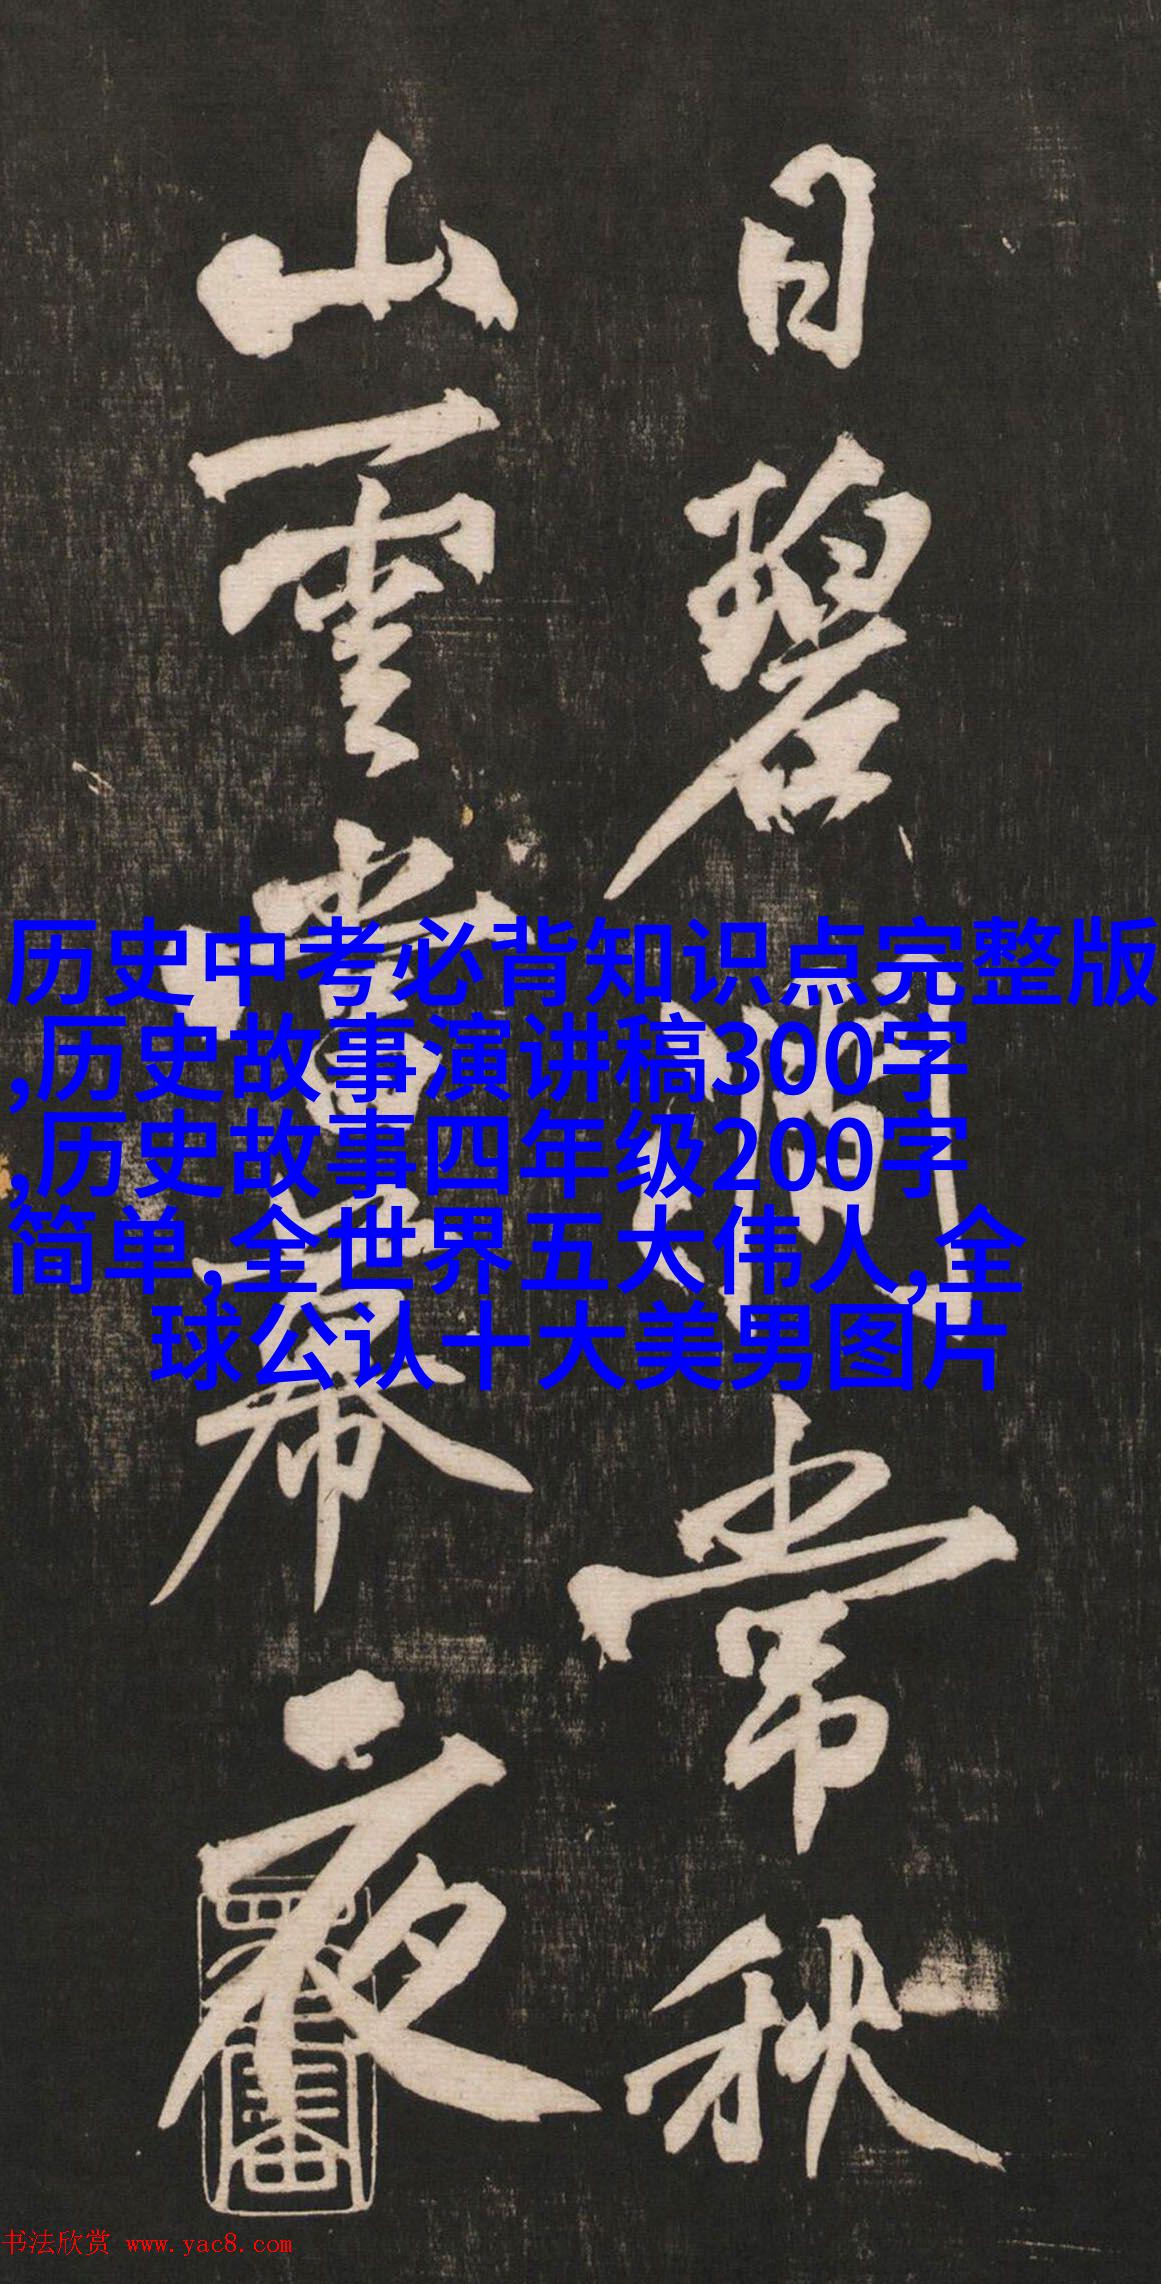 日碧澗常秋
山雲當幕夜
历史中考必背知识点完整版
,历史故事演讲稿300字
,历史故事四年级200字
简单,全世界五大伟人,全
球公认十大美男图片
书法欣赏 www.yac8.com